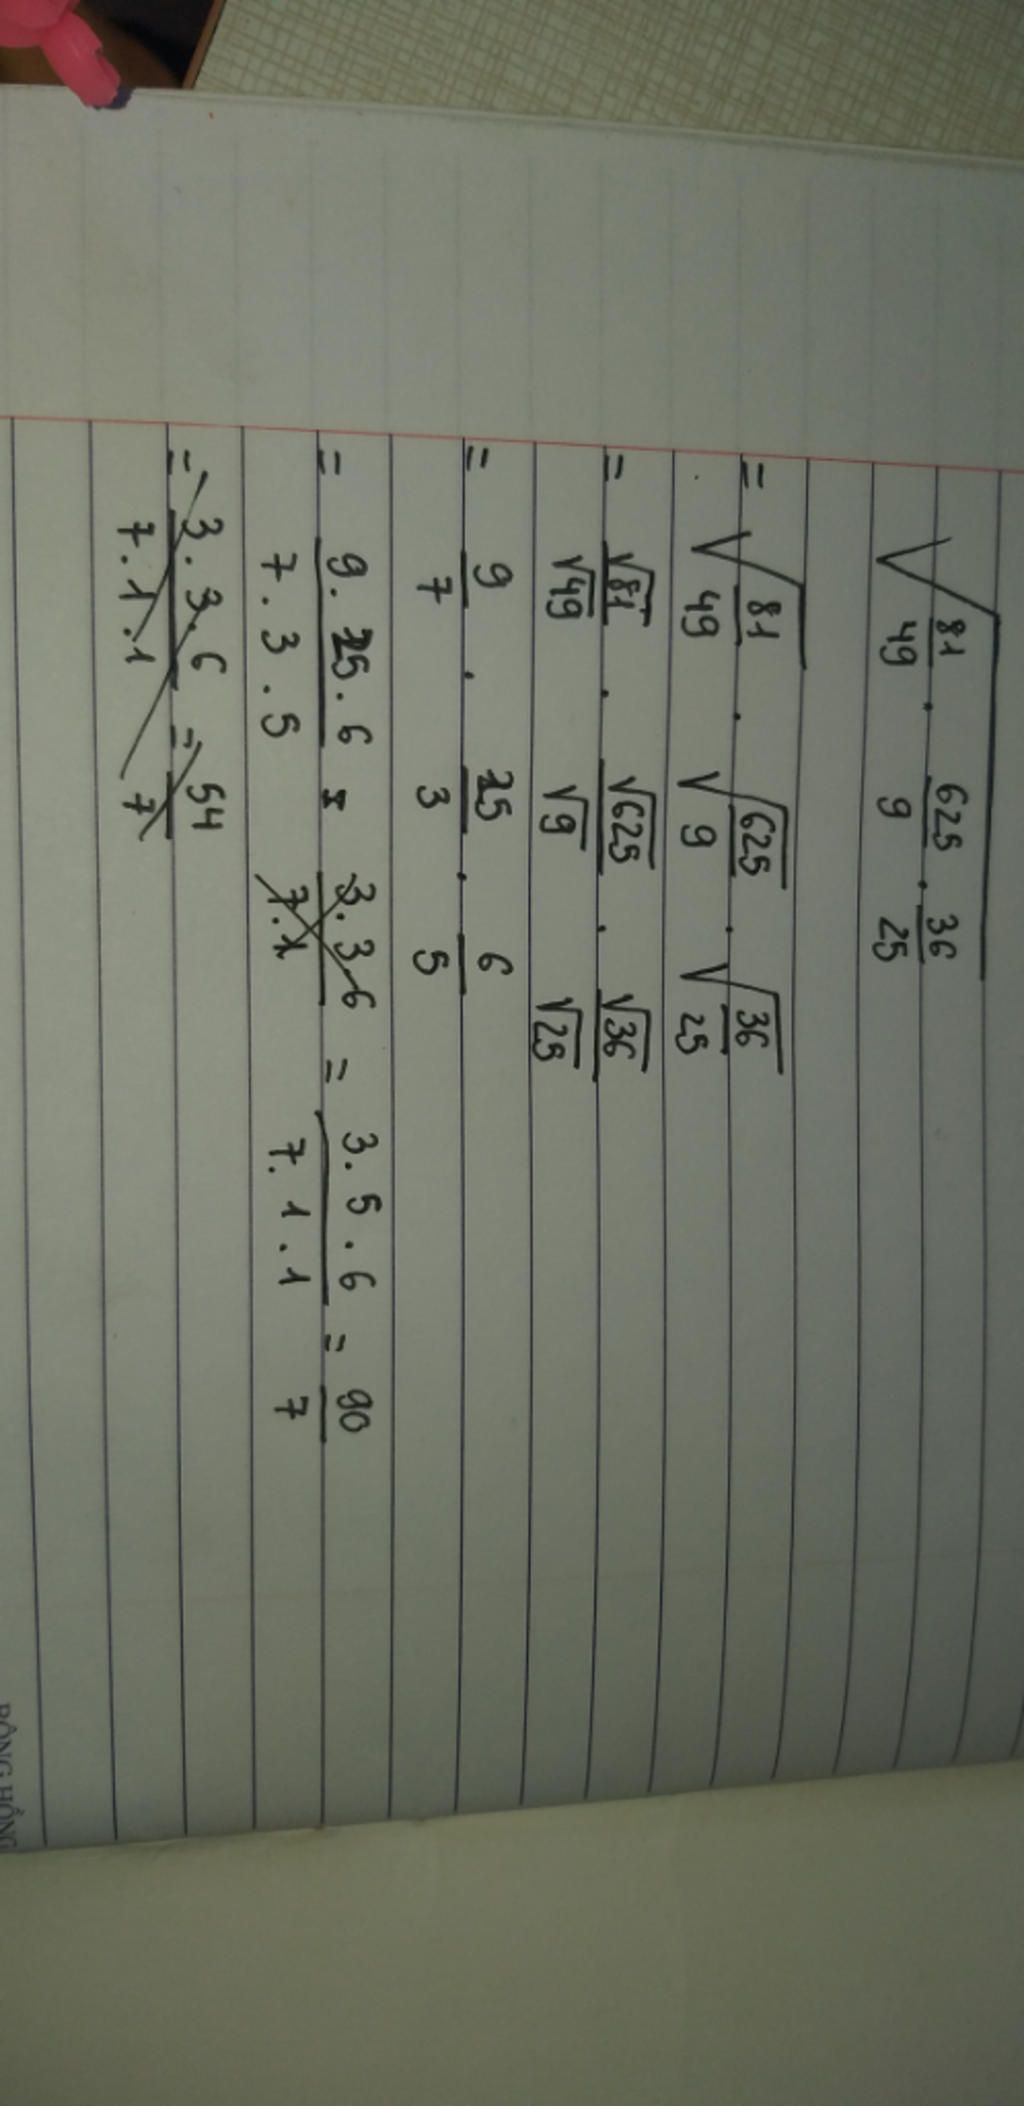 √(81/49 . 625/9 . 36/25)
= √(81/49) . √(625/9) . √(36/25)
= √81/√49 . √625/√9 . √36/√25
= 9/7 . 25/3 . 6/5
= (9 . 25 . 6)/(7 . 3 . 5) = (3 . 5 . 6)/(7 . 1 . 1) = 90/7
= (3 . 3 . 6)/(7 . 1 . 1) = 54/7
BÔNG HỒNG